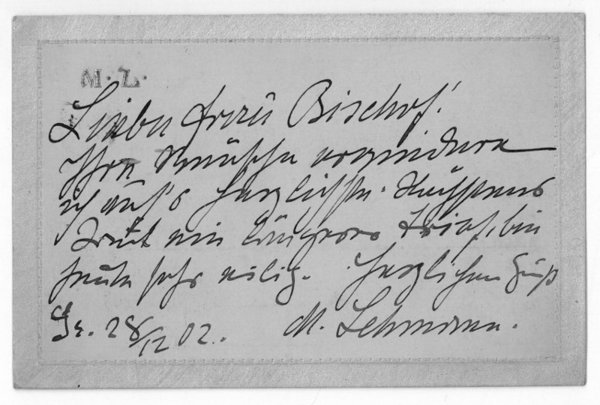 M. L.
Liebe Frau Bischof!
Ihre Wünsche erwiedere
ich auf's herzlichste. Nächstens
ein längerer Brief, bin
heute sehr eilig. Herzlichen Gruß
28/12 02. M. Lehmann.